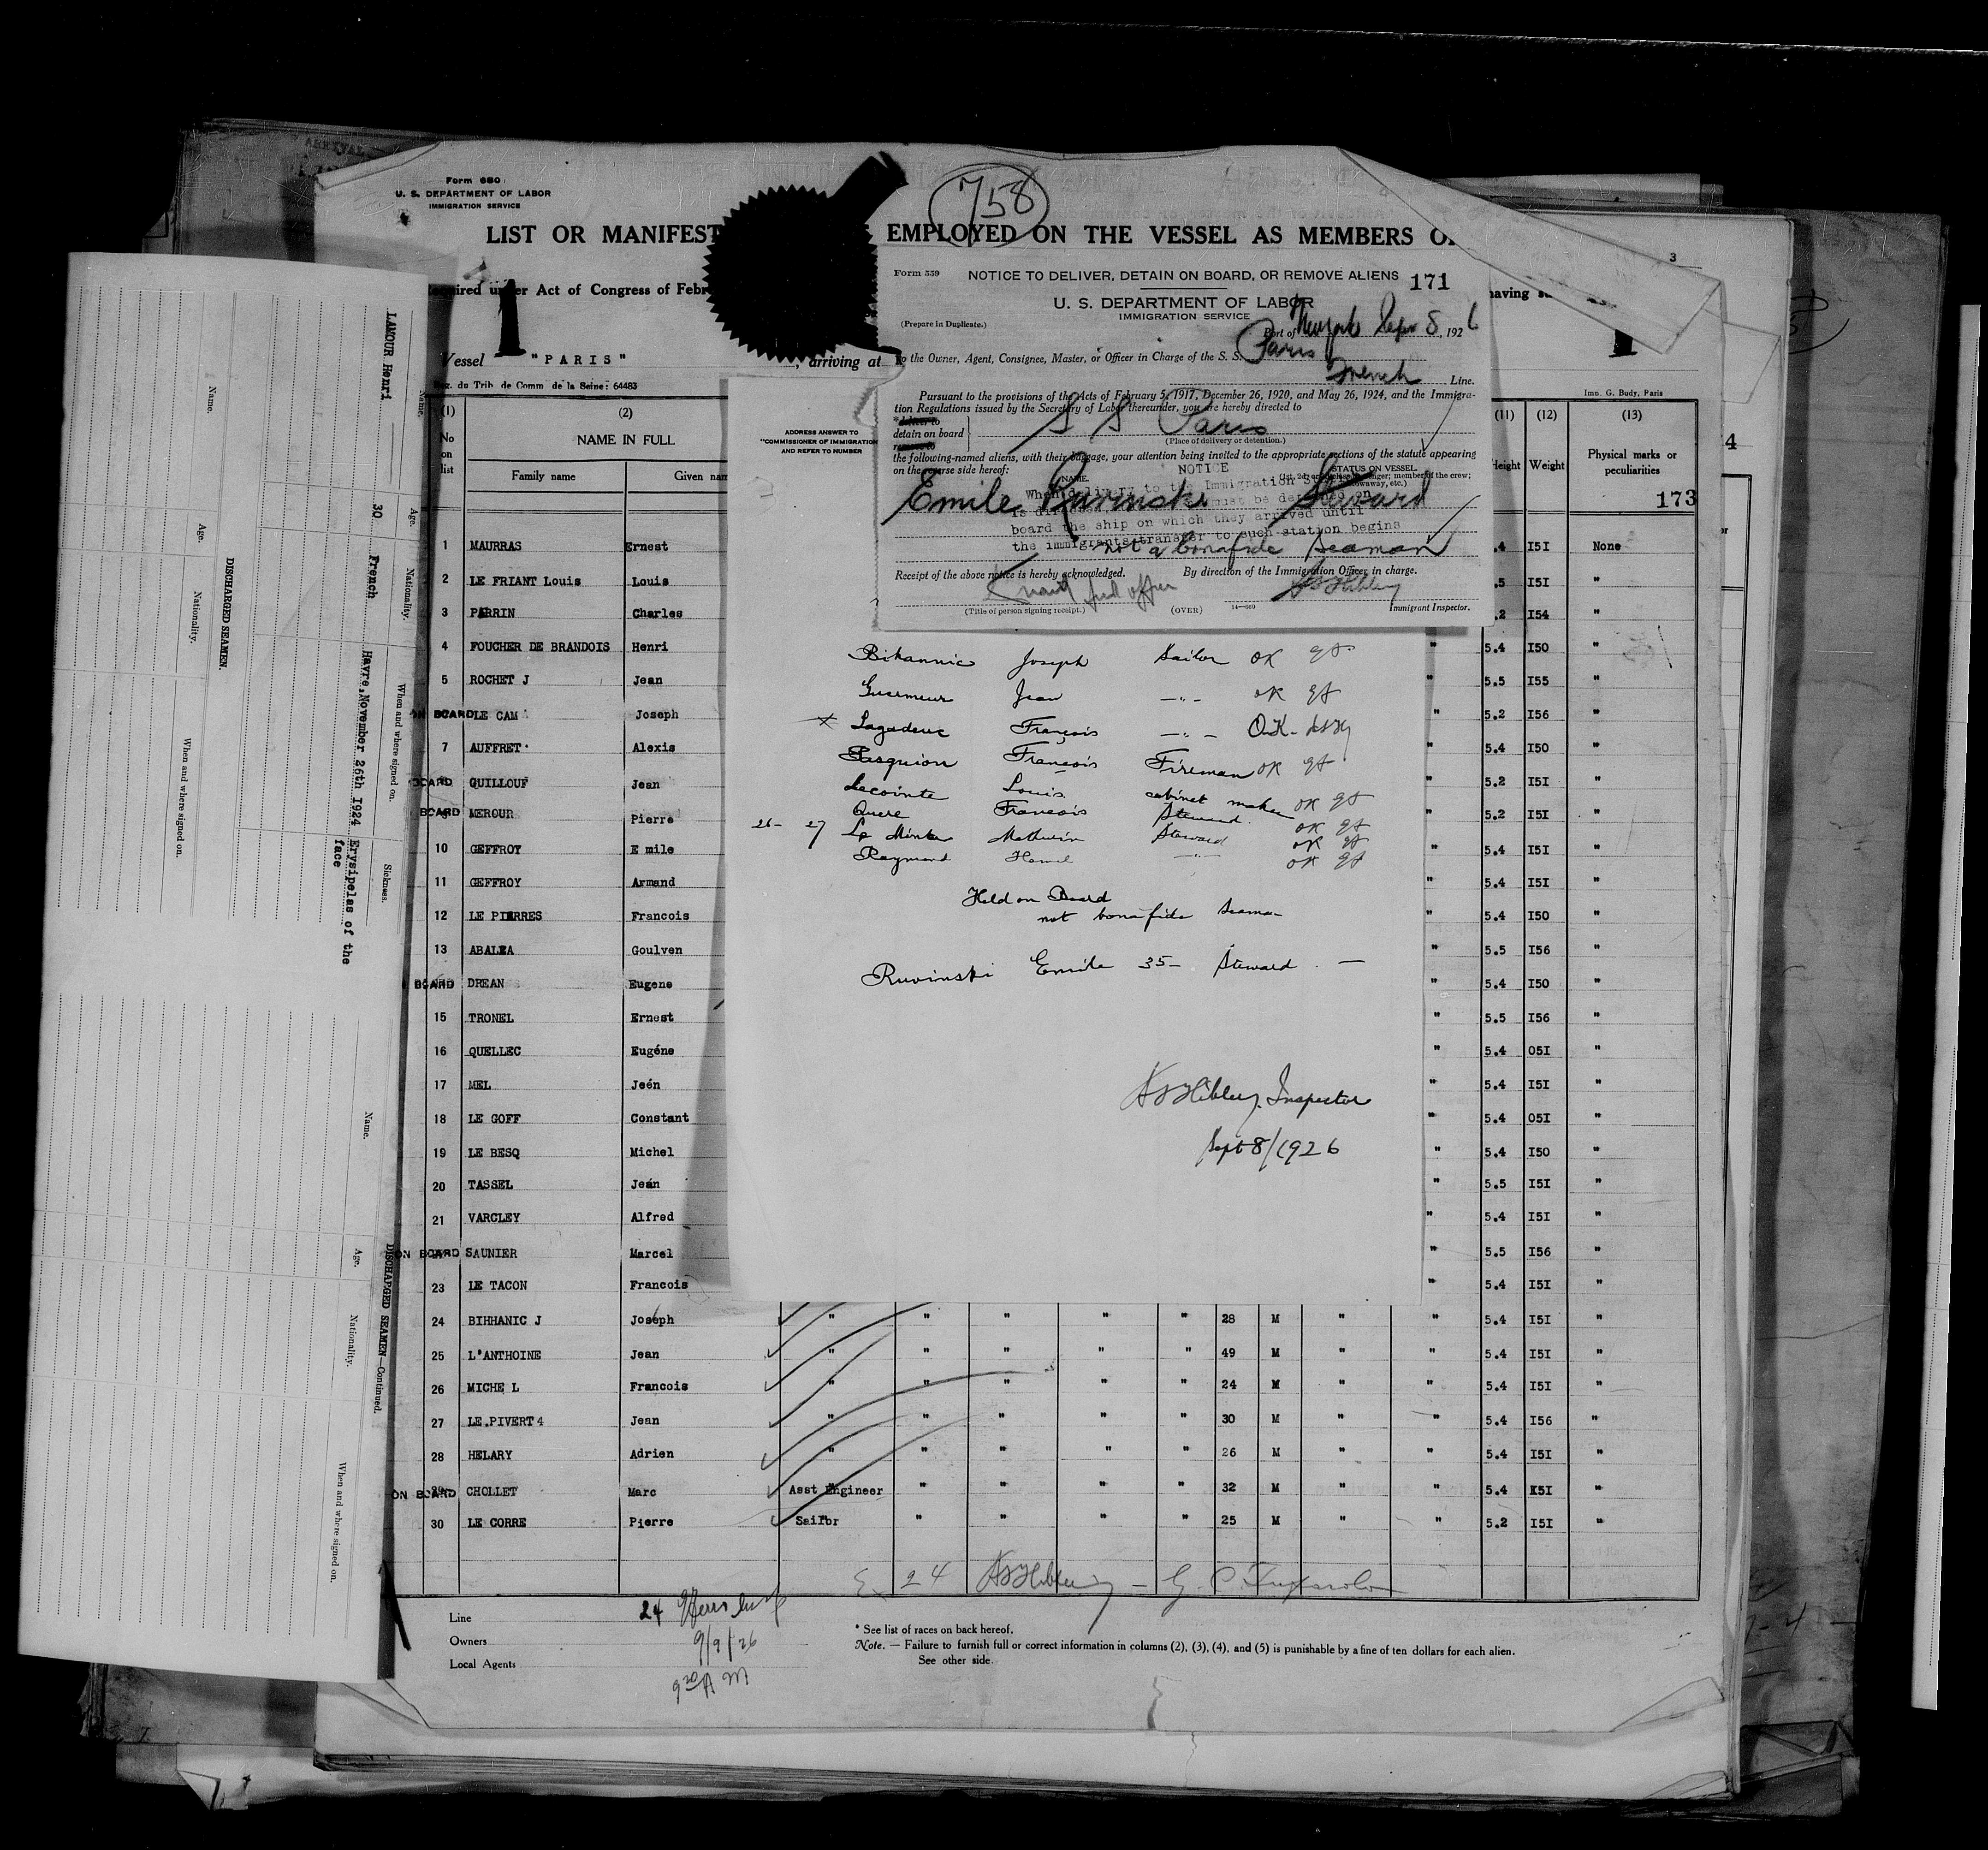 ARRIVAL
Form 680
U. S. DEPARTMENT OF LABOR
IMMIGRATION SERVICE
758
LIST OR MANIFEST
EMPLOYED ON THE VESSEL AS MEMBERS O
3
1
Act of Congress of
having
Vessel "PARIS"
arriving at
du Trib. de Comm. de la Seine: 64483
Imp. G. Budy, Paris
Form 559
NOTICE TO DELIVER, DETAIN ON BOARD, OR REMOVE ALIENS
171
U. S. DEPARTMENT OF LABOR
IMMIGRATION SERVICE
(Prepare in Duplicate.)
Port of New York Sept 8, 1926
To the Owner, Agent, Consignee, Master, or Officer in Charge of the S. S. Paris
French Line.
Pursuant to the provisions of the Acts of February 5, 1917, December 26, 1920, and May 26, 1924, and the Immigra-
tion Regulations issued by the Secretary of Labor thereunder, you are hereby directed to
detain on board
S S Paris
(Place of delivery or detention.)
the following-named aliens, with their baggage, your attention being invited to the appropriate sections of the statute appearing
on the reverse side hereof:
NOTICE
STATUS ON VESSEL
NAME.
When delivery to the Immigration
must be detained on
board the ship on which they arrived until
the immigrants transfer to such station begins
Emile Ruvinski Steward
not a bonafide Seaman
Receipt of the above notice is hereby acknowledged.
By direction of the Immigration Officer in charge.
(Title of person signing receipt.)
(OVER)
14—669
Immigrant Inspector.
ADDRESS ANSWER TO
"COMMISSIONER OF IMMIGRATION
AND REFER TO NUMBER
Bihannic Joseph Sailor OK
Guermeur Jean —"— OK
x Lagadeuc François —"— O.K.
Pasquiou François Fireman OK
Lecointe Louis cabinet maker OK
Quere Francois Steward OK
26- 27 Le Minter Mathurin Steward OK
Raymond —"— OK
Held on Board
not bonafide Seaman
Ruvinski Emile 35- Steward —
Inspector
Sept 8/1926
(1)
(2)
(11)
(12)
(13)
4
No
on
list
NAME IN FULL
Family name
Given nam
Height
Weight
Physical marks or
peculiarities
173
1 MAURRAS Ernest .4 I5I None
2 LE FRIANT Louis Louis .5 I5I "
3 PARRIN Charles .2 I54 "
4 FOUCHER DE BRANDOIS Henri " 5.4 I50 "
5 ROCHET J Jean " 5.5 I55 "
ON BOARD LE CAM Joseph " 5.2 I56 "
7 AUFFRET Alexis " 5.4 I50 "
BOARD QUILLOUF Jean " 5.2 I5I "
BOARD MEROUR Pierre " 5.2 I5I "
10 GEFFROY E mile " 5.4 I5I "
11 GEFFROY Armand " 5.4 I5I "
12 LE PIERRES Francois " 5.4 I50 "
13 ABALEA Goulven " 5.5 I56 "
BOARD DREAN Eugene " 5.4 I50 "
15 TRONEL Ernest " 5.5 I56 "
16 QUELLEC Eugéne " 5.4 05I "
17 MEL Jeén " 5.4 I5I "
18 LE GOFF Constant " 5.4 05I "
19 LE BESQ Michel " 5.4 I50 "
20 TASSEL Jeán " 5.5 I5I "
21 VARCLEY Alfred " 5.4 I5I "
ON BOARD SAUNIER Marcel " 5.5 I56 "
23 LE TACON Francois " 5.4 I5I "
24 BIHHANIC J Joseph " " " " " 28 M " " 5.4 I5I "
25 L'ANTHOINE Jean " " " " " 49 M " " 5.4 I5I "
26 MICHE L Francois " " " " " 24 M " " 5.4 I5I "
27 LE PIVERT 4 Jean " " " " " 30 M " " 5.4 I56 "
28 HELARY Adrien " " " " " 26 M " " 5.4 I5I "
ON BOARD 29 CHOLLET Marc Asst Engineer " " " " 32 M " " 5.4 I5I "
30 LE CORRE Pierre Sailor " " " " 25 M " " 5.2 I5I "
24
Line
Owners
Local Agents
24
9/9/26
* See list of races on back hereof.
Note. — Failure to furnish full or correct information in columns (2), (3), (4), and (5) is punishable by a fine of ten dollars for each alien.
See other side.
DISCHARGED SEAMEN.
Name.
Age.
Nationality.
When and where signed on.
Sickness.
LAMOUR Henri 30 French Havre, November 26th I924 Erysipelas of the
face
Name.
Age.
Nationality.
When and where signed on.
DISCHARGED SEAMEN—Continued.
Name.
Age.
Nationality.
When and where signed on.